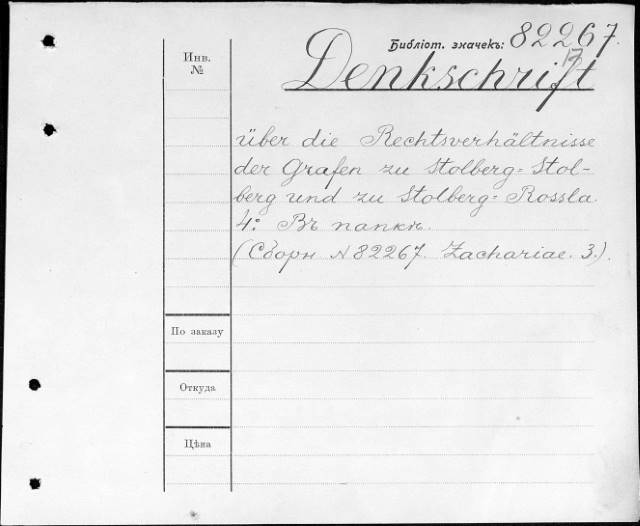 Библіот. значекъ: 82267.
17
Инв.
№
Denkschrift
über die Rechtsverhältnisse
der Grafen zu Stolberg=Stol-
berg und zu Stolberg=Rossla.
4:° Въ папкѣ.
(Сборн N 82267. Zachariae. 3.).
По заказу
Откуда
Цѣна